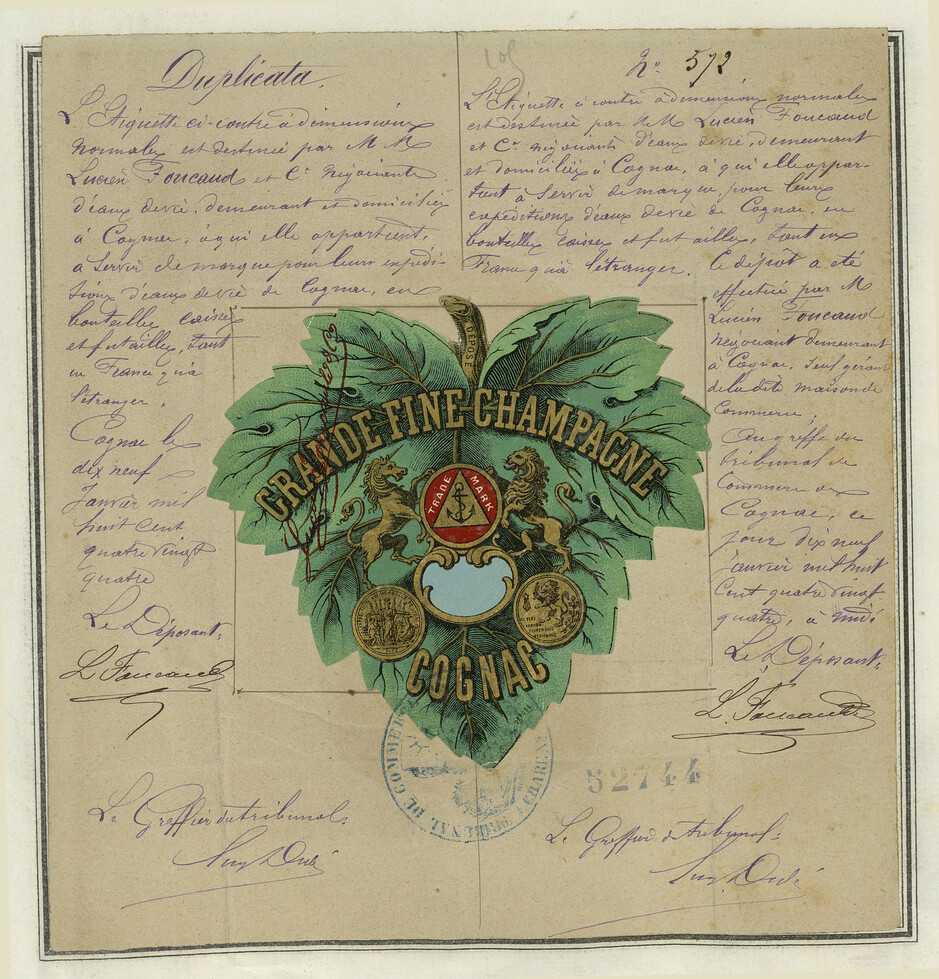 Duplicata.
L'Etiquette ci-contre à dimensions
normales est destinée par M M
Lucien Foucaud et Cie Négociants
d'eaux de vie, demeurant et domiciliés
à Cognac, à qui elle appartient,
à servir de marque pour leurs expédi-
tions d'eaux de vie de Cognac, en
bouteilles caisses
et futailles, tant
en France qu'à
l'étranger.
Cognac le
dix neuf
Janvier mil
huit cent
quatre vingt
quatre
Le Déposant,
L. Foucaud
Le Greffier du tribunal,
105
No 572
L'Etiquette ci contre à dimensions normales
est destinée par M M Lucien Foucaud
et Cie négociants d'eaux de vie, demeurant
et domiciliés à Cognac, à qui elle appar-
tient à servir de marque pour leurs
expéditions d'eaux de vie de Cognac, en
bouteilles caisses et futailles, tant en
France qu'à l'étranger.
Ce dépôt a été
effectué par M
Lucien Foucaud
négociant demeurant
à Cognac, seul gérant
de la dite maison de
Commerce.
Au greffe du
tribunal de
Commerce de
Cognac, ce
jour dix neuf
janvier mil huit
cent quatre vingt
quatre, à midi
Le Déposant,
L. Foucaud
Le Greffier du tribunal,
DÉPOSÉ
GRANDE-FINE-CHAMPAGNE
TRADE MARK
COGNAC
TRIBUNAL DE COMMERCE
CHARENTE
52744